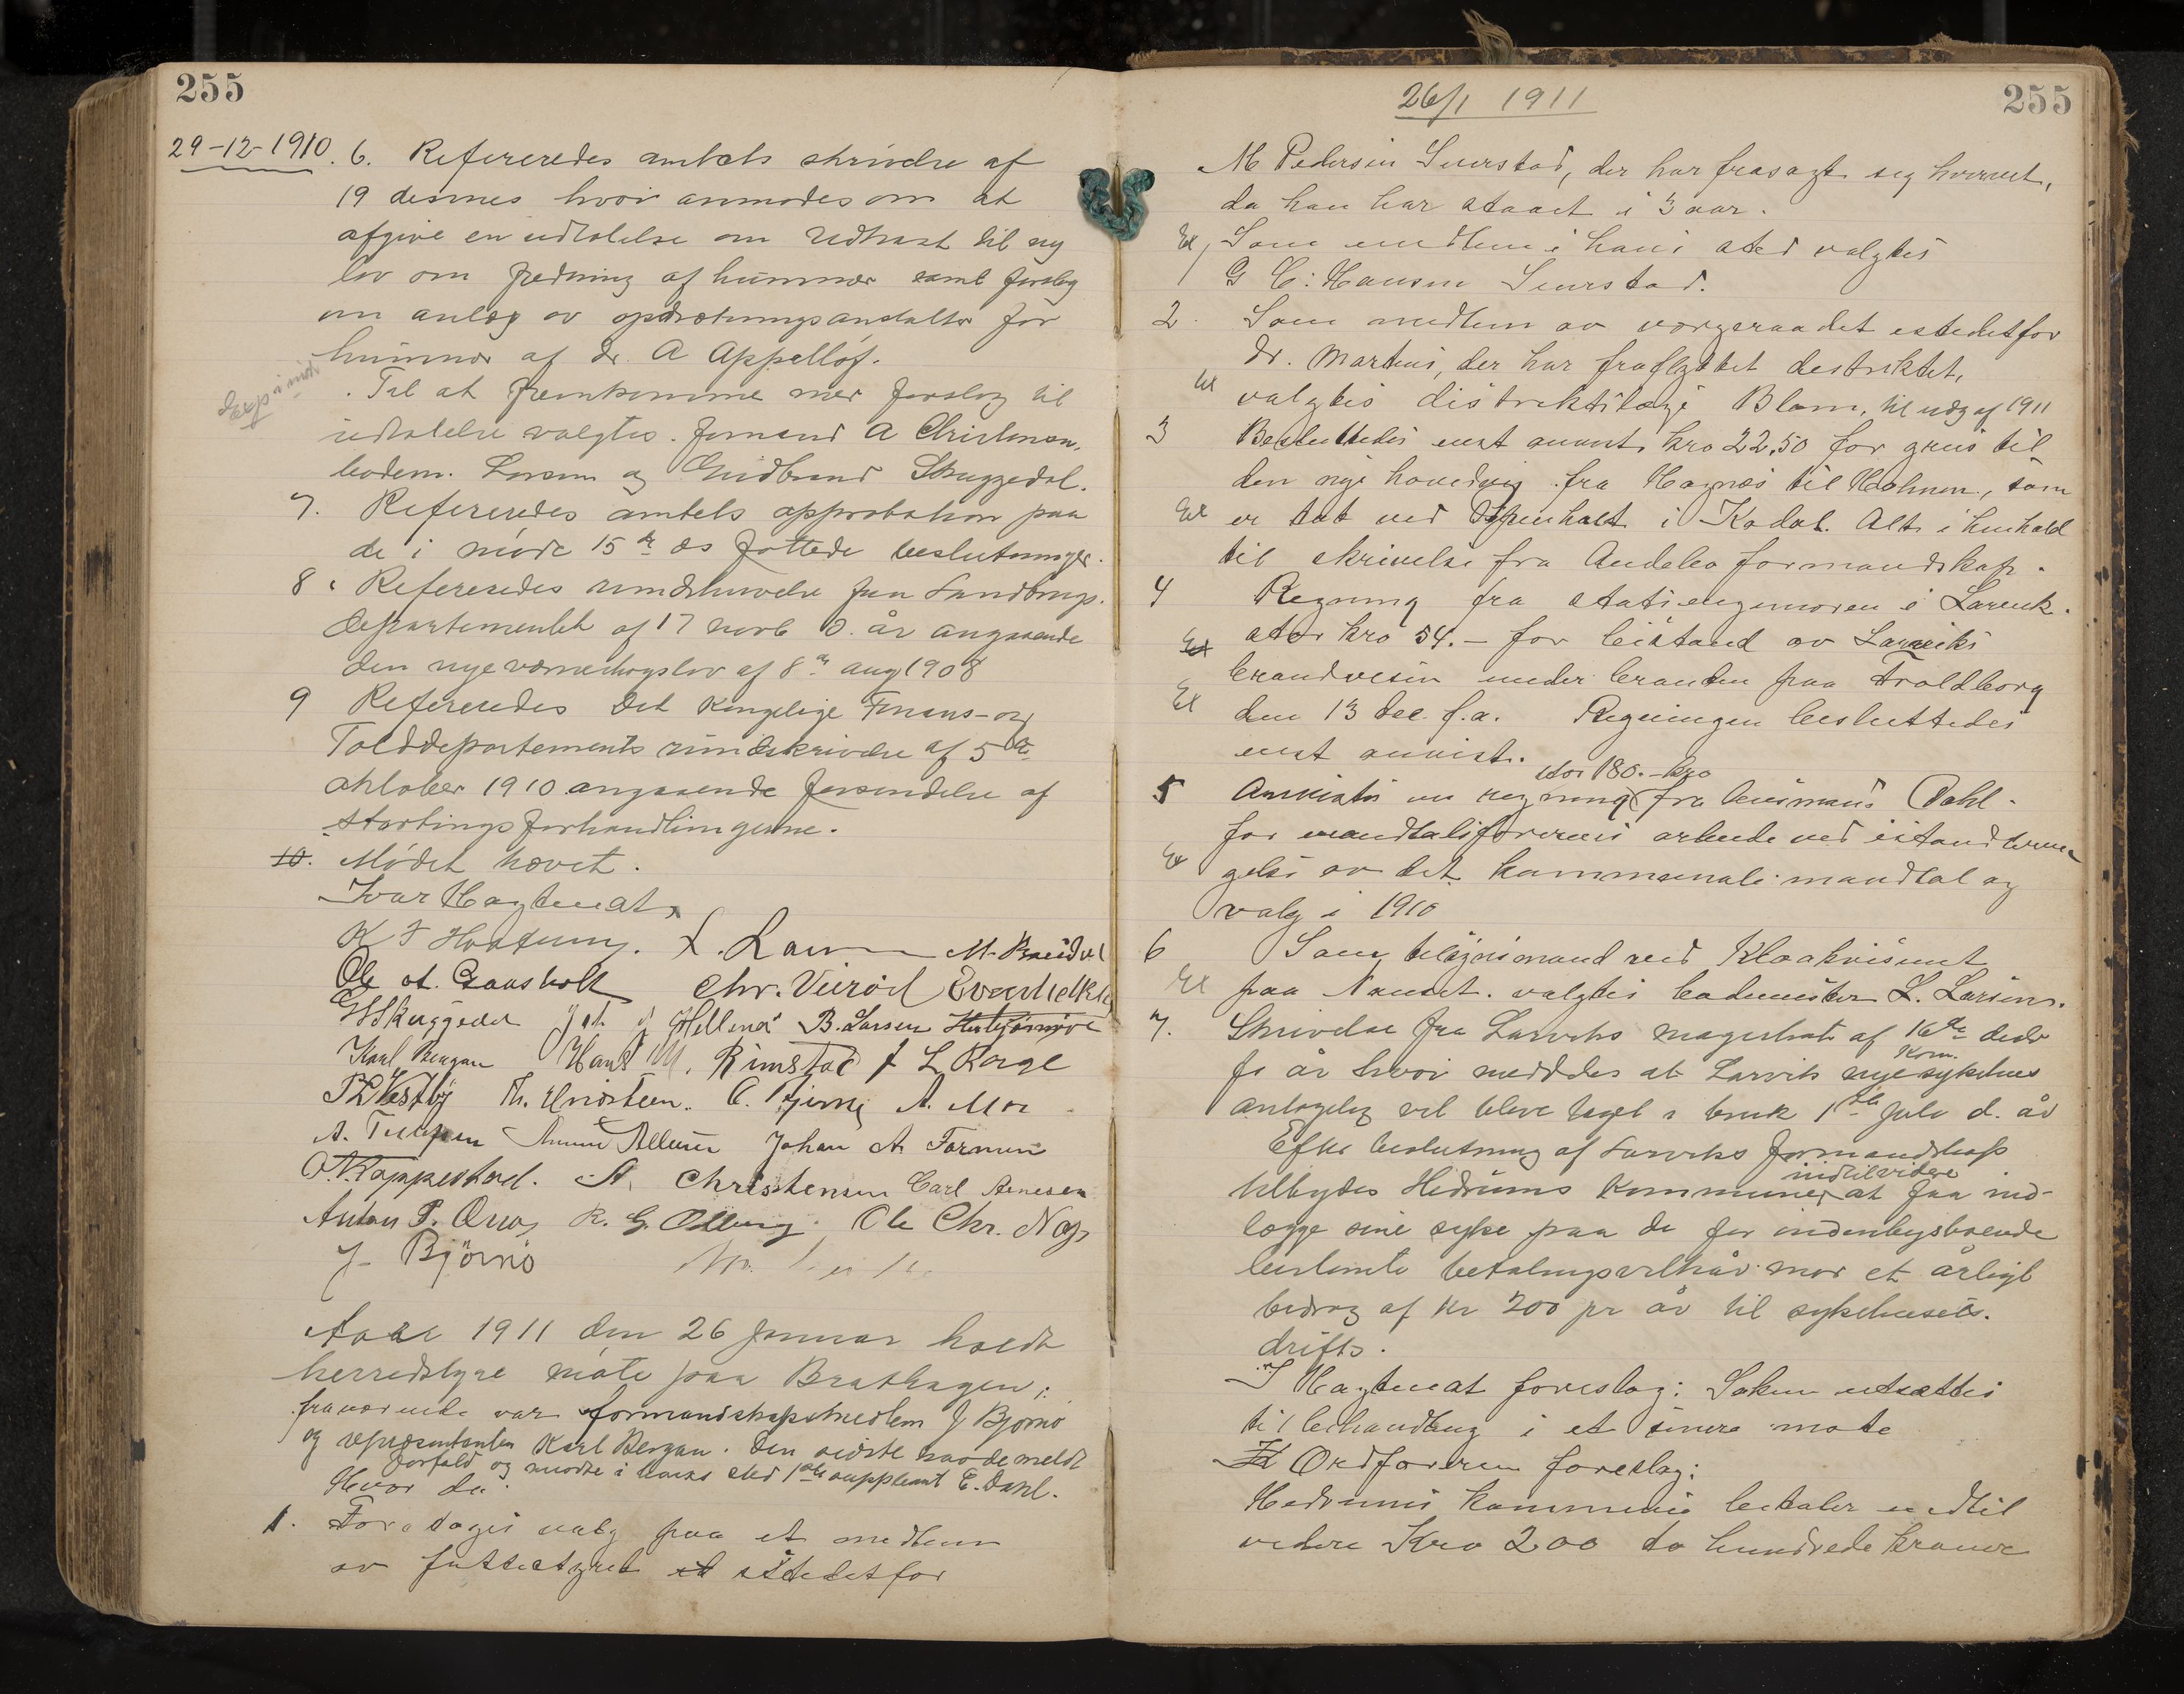 255
29-12-1910. 6. Refereredes amtets skrivelse af
19 desmes hvor anmodes om at
afgive en udtalelse om Udkast til ny
lov om fredning af hummer samt forslag
om anlæg av opdrætningsanstalter for
hummer af dr. A Appellöf.
Exp
Til at fremkomme mer forslag til
udtalelse valgtes. formand A Christensen,
badem. Larsen og Gudbrand Skuggedal.
7. Refereredes amtets approbation paa
de i møde 15de ds fattede beslutninger.
8. Refereredes rundskrivelse fra Landbrugs.
departementet af 17 novb d. år angaaende
den nye værnelov af 8de aug 1908
9 Refereredes Det kongelige Finans- og
Tolddepartements rundskrivelse af 5te
oktober 1910 angaaende forsendelse af
stortingsforhandlingerne.
10. Mødet hævet.
Ivar Hagtvedt
K F Hvatum. L. Larsen M. Breidvei
Ole A. Gaasholt Chr. Veiröd
G Skuggedal Joh. Hellenes B. Larsen
Karl Bergan Hans M. Rimstad L Korge
P L Vestby Th. A. Moe
A. Johan A. Farmen
O. Kappestad. A. Christensen Carl Arnesen
Anton P. R. G. Odberg. Ole Chr. Næs
J. Björnö
Aaar 1911 den 26 januar holdt
herredstyre møte paa Brathagen;
fraværende var formandskapsmedlem J Bjørnø
og repræsentanten Karl Bergan. Den sidste havde meldt
forfald og møtte i hans sted 1ste suppleant E. Dahl.
Hvor da:
1. Foretoges valg paa et medlem
av fattigstyret istedetfor
26/1 1911
255
M Pedersen Seierstad, der har frasagt seg hvervet,
da han har staaet i 3 aar.
Ex, Som medlem i hans sted valgtes
G C. Hansen Seierstad.
2. Som medlem av vergeraadet istedetfor
dr. Martens, der har fraflyttet destriktet,
Ex valgtes distriktslæge Blom, til udg af 1911
3 Besluttedes enst anvist kro 22,50 for grus til
den nye hovedvei fra Hagnæs til Holmen, som
Ex er tat ved Gjeenholt i Kodal. Alt i henhold
til skrivelse fra Andebo formandskap.
4 Regning fra statsingeniøren i Larvik.
Ex stor kro 54.- for bistand av Larviks
brandvesen under branden paa Troldborg
Ex den 13 dec. f.a. Regningen besluttedes
enst anvist.
stor 180.- kro
5 Anvistes en regning fra lensmand Dahl
for mandtalsførerens arbeide ved istandbrin-
Ex gelse av det kommunale mandtal og
valg i 1910
6 Som tilsynsmand ved Kloakvæsenet
Ex paa Nanset. valgtes bademester L. Larsen.
7. Skrivelse fra Larviks magistrat af 16de decbr
kom.
f. år hvor meddeles at Larviks nye sykehus
antagelig vil bleve taget i bruk 1ste juli d. år
Efter beslutning af Larviks formandskap
indtilvidere
tilbydes Hedrums Kommune at faa ind-
lægge sine syke paa de for indenbysboende
bestemte betalingsvilkår mot et årligt
bidrag af kr 200 pr år til sykehusets.
drifts.
I Hagtvedt foreslog: Saken utsættes
til behandling i et senere møte
Ordføreren foreslog:
Hedrums kommune betaler indtil
videre Kro 200 to hundrede kroner